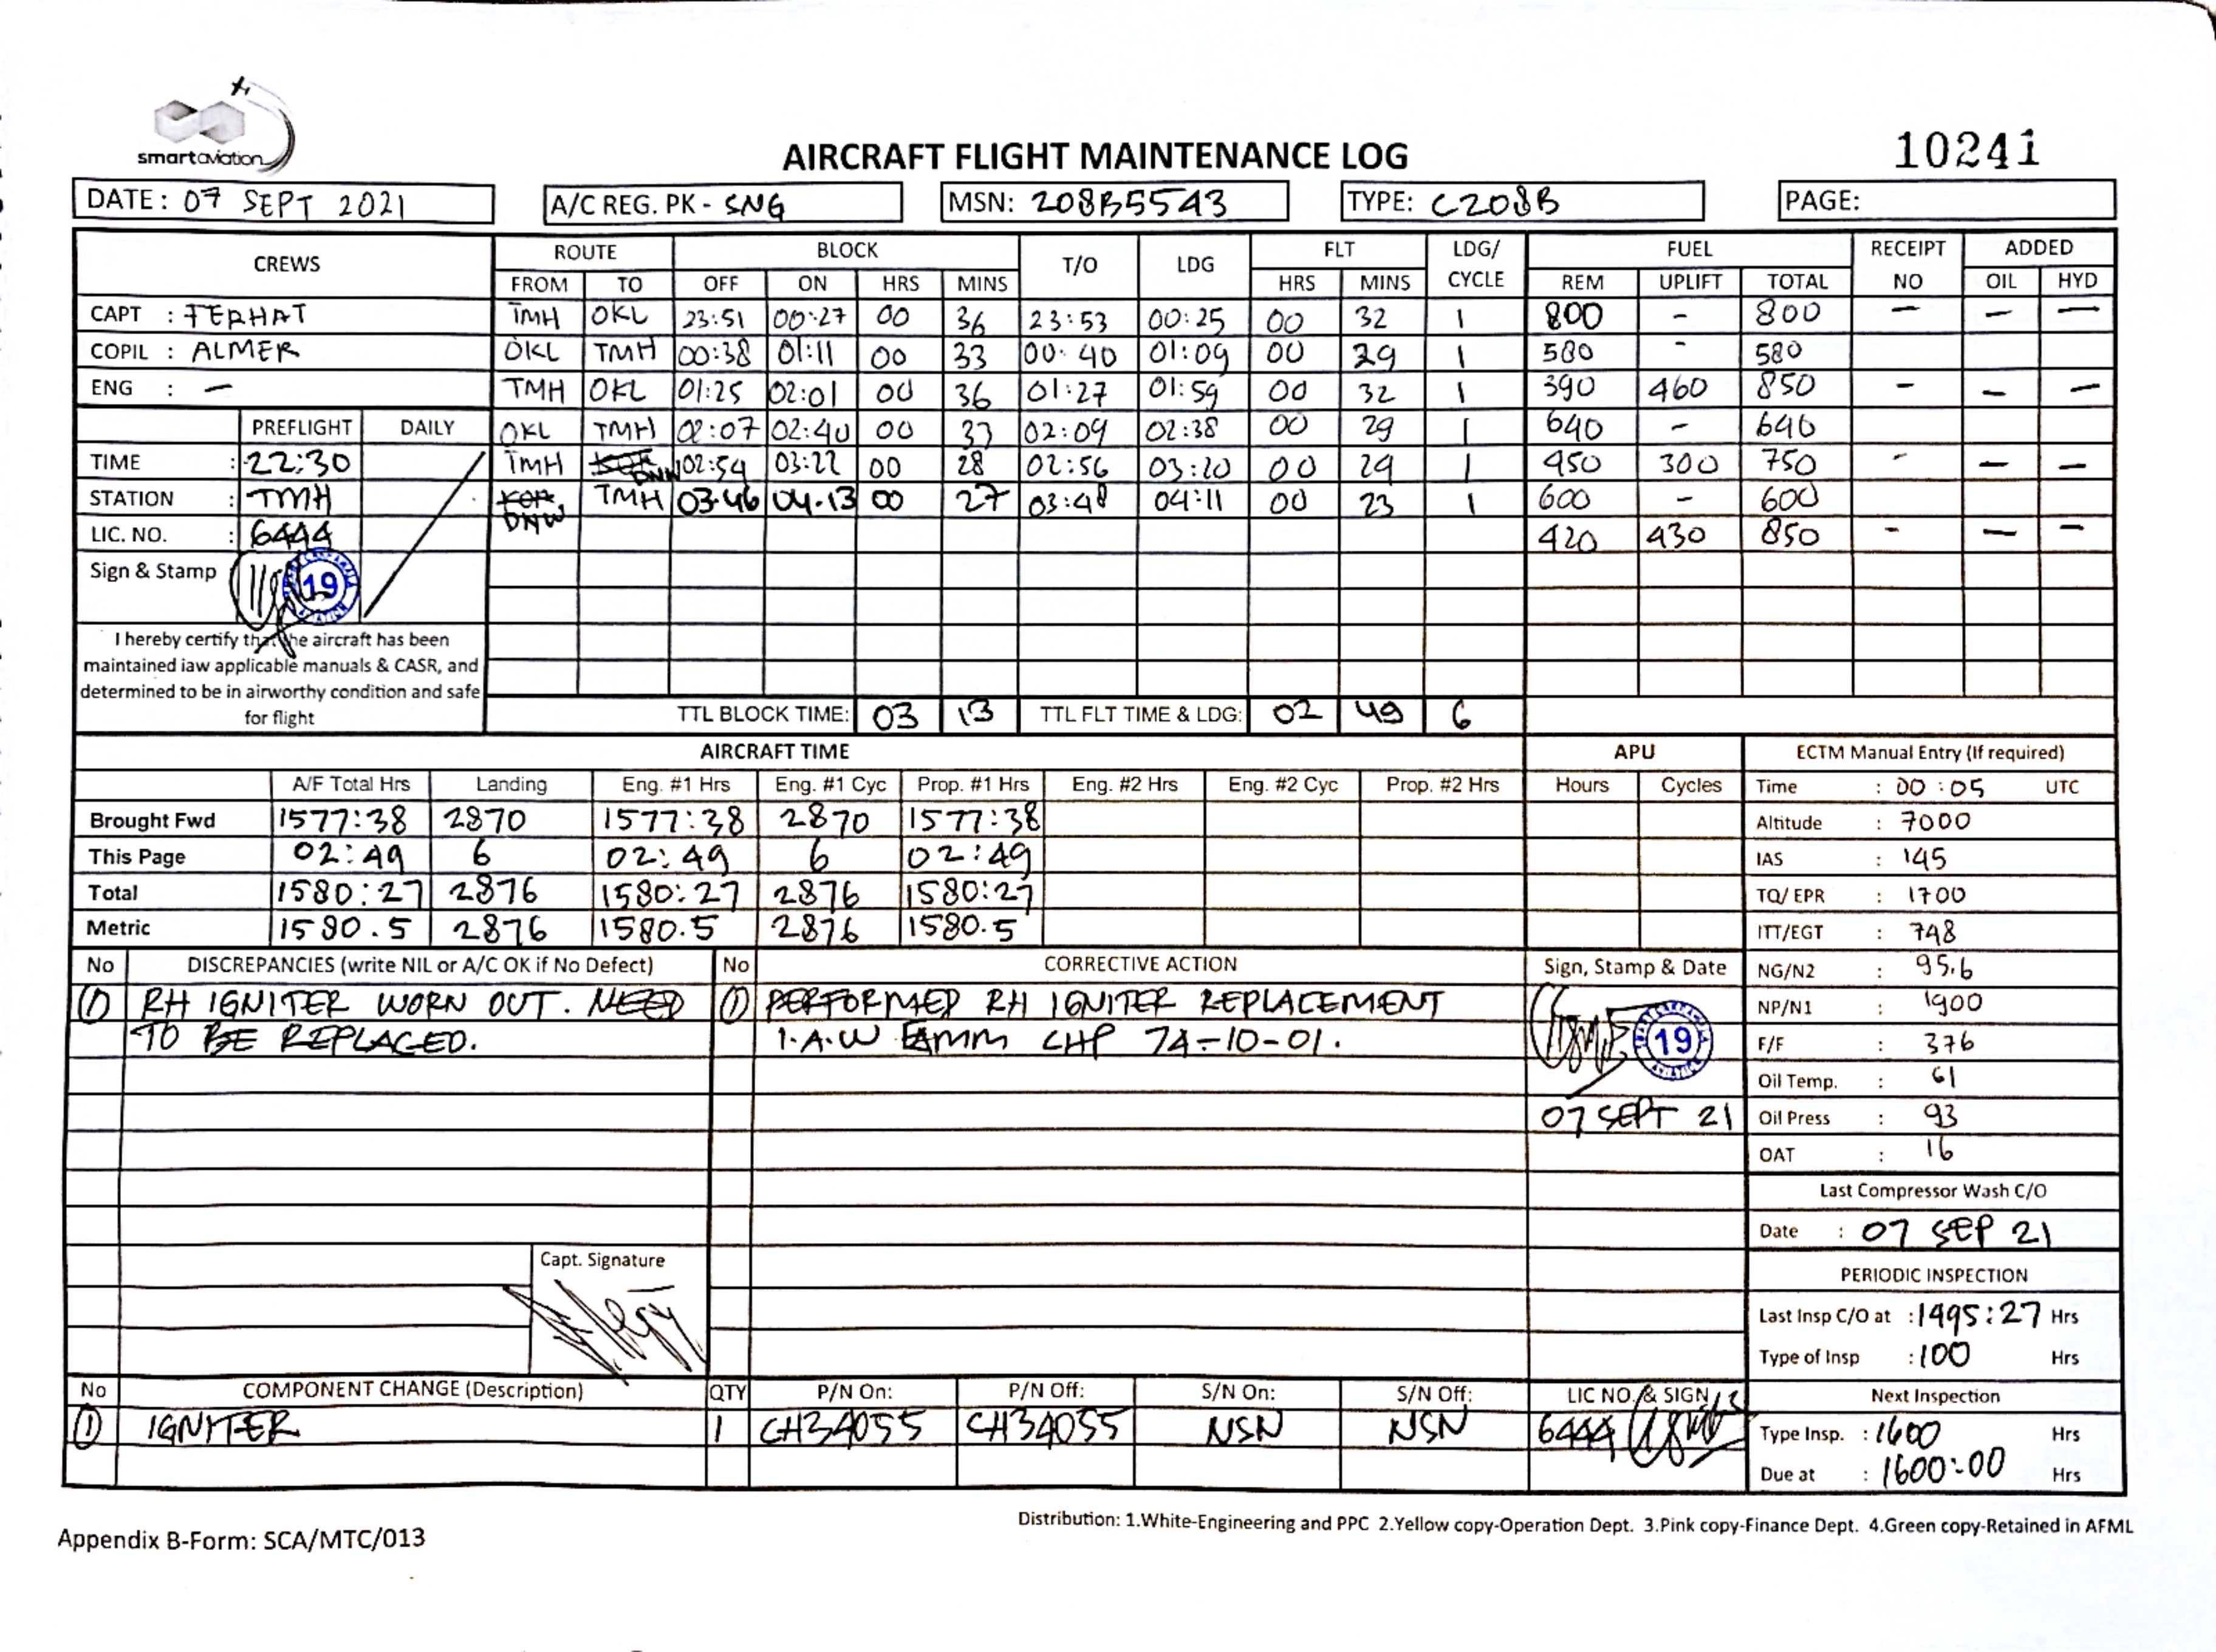 smartaviation
AIRCRAFT FLIGHT MAINTENANCE LOG
10241
DATE: 07 SEPT 2021
A/C REG. PK - SNG
MSN: 208B5543
TYPE: C208B
PAGE:
CREWS ROUTE BLOCK T/O LDG FLT LDG/ CYCLE FUEL RECEIPT NO ADDED
FROM TO OFF ON HRS MINS HRS MINS REM UPLIFT TOTAL OIL HYD
CAPT : FERHAT TMH OKL 23:51 00:27 00 36 23:53 00:25 00 32 1 800 - 800 - - -
COPIL : ALMER OKL TMH 00:38 01:11 00 33 00:40 01:09 00 29 1 580 - 580
ENG : - TMH OKL 01:25 02:01 00 36 01:27 01:59 00 32 1 390 460 850 - - -
PREFLIGHT DAILY OKL TMH 02:07 02:40 00 33 02:09 02:38 00 29 1 640 - 640
TIME : 22:30 TMH DNW 02:54 03:22 00 28 02:56 03:20 00 24 1 450 300 750 - - -
STATION : TMH DNW TMH 03:46 04.13 00 27 03:48 04:11 00 23 1 600 - 600
LIC. NO. : 6444 420 430 850 - - -
Sign & Stamp 19
I hereby certify that the aircraft has been
maintained iaw applicable manuals & CASR, and
determined to be in airworthy condition and safe
for flight
TTL BLOCK TIME: 03 13 TTL FLT TIME & LDG: 02 49 6
AIRCRAFT TIME APU
A/F Total Hrs Landing Eng. #1 Hrs Eng. #1 Cyc Prop. #1 Hrs Eng. #2 Hrs Eng. #2 Cyc Prop. #2 Hrs Hours Cycles
Brought Fwd 1577:38 2870 1577:38 2870 1577:38
This Page 02:49 6 02:49 6 02:49
Total 1580:27 2876 1580:27 2876 1580:27
Metric 1580.5 2876 1580.5 2876 1580.5
ECTM Manual Entry (If required)
Time : 00:05 UTC
Altitude : 7000
IAS : 145
TQ/ EPR : 1700
ITT/EGT : 748
NG/N2 : 95.6
NP/N1 : 1900
F/F : 376
Oil Temp. : 61
Oil Press : 93
OAT : 16
Last Compressor Wash C/O
Date : 07 SEP 21
PERIODIC INSPECTION
Last Insp C/O at : 1495:27 Hrs
Type of Insp : 100 Hrs
Next Inspection
Type Insp. : 1600 Hrs
Due at : 1600:00 Hrs
No DISCREPANCIES (write NIL or A/C OK if No Defect) No CORRECTIVE ACTION Sign, Stamp & Date
① RH IGNITER WORN OUT. NEED ① PERFORMED RH IGNITER REPLACEMENT
TO BE REPLACED. I.A.W EAMM CHP 74-10-01. 19
07 SEPT 21
Capt. Signature
No COMPONENT CHANGE (Description) QTY P/N On: P/N Off: S/N On: S/N Off: LIC NO. & SIGN
① IGNITER 1 CH34055 CH34055 NSN NSN 6444
Distribution: 1.White-Engineering and PPC 2.Yellow copy-Operation Dept. 3.Pink copy-Finance Dept. 4.Green copy-Retained in AFML
Appendix B-Form: SCA/MTC/013